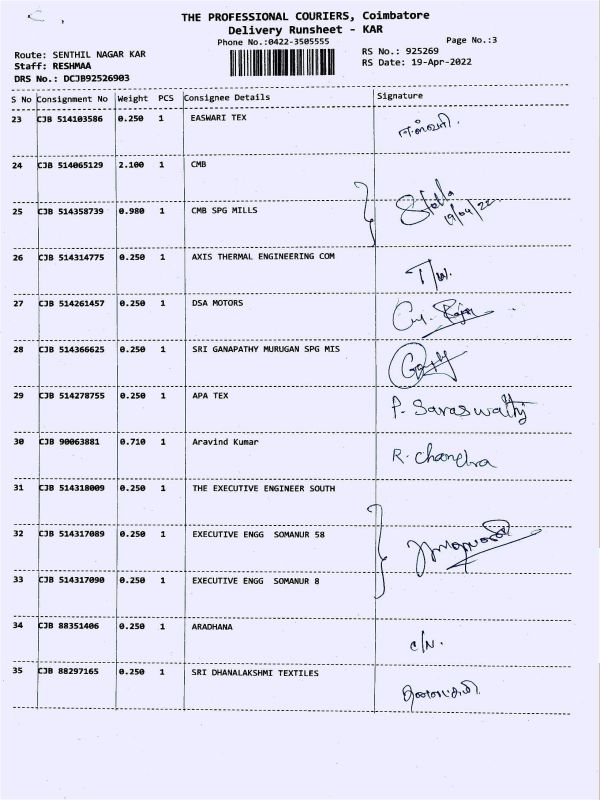 THE PROFESSIONAL COURIERS, Coimbatore
Delivery Runsheet - KAR
Phone No.:0422-3505555 Page No.:3
Route: SENTHIL NAGAR KAR RS No.: 925269
Staff: RESHMAA RS Date: 19-Apr-2022
DRS No.: DCJB92526903
S No Consignment No Weight PCS Consignee Details Signature
23 CJB 514103586 0.250 1 EASWARI TEX
24 CJB 514065129 2.100 1 CMB
Stella
19/04/22
25 CJB 514358739 0.980 1 CMB SPG MILLS
26 CJB 514314775 0.250 1 AXIS THERMAL ENGINEERING COM
27 CJB 514261457 0.250 1 DSA MOTORS
28 CJB 514366625 0.250 1 SRI GANAPATHY MURUGAN SPG MIS
29 CJB 514278755 0.250 1 APA TEX P. Saraswathy
30 CJB 90063881 0.710 1 Aravind Kumar R. Chandra
31 CJB 514318009 0.250 1 THE EXECUTIVE ENGINEER SOUTH
32 CJB 514317089 0.250 1 EXECUTIVE ENGG SOMANUR 58
33 CJB 514317090 0.250 1 EXECUTIVE ENGG SOMANUR 8
34 CJB 88351406 0.250 1 ARADHANA C/N.
35 CJB 88297165 0.250 1 SRI DHANALAKSHMI TEXTILES